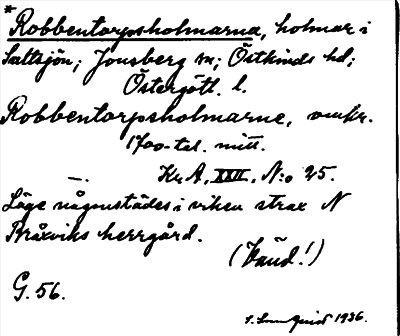 * Robbentorpsholmarna, holmar i
Saltsjön; Jonsberg sn; Östkinds hd;
Östergötl. l.
Robbentorpsholmarne, omkr.
1700-tal. mitt.
—. Kr. A, XXII, N:o 25.
Läge någonstädes i viken strax N
Bråxviks herrgård.
(Vänd!)
G. 56.
1936.